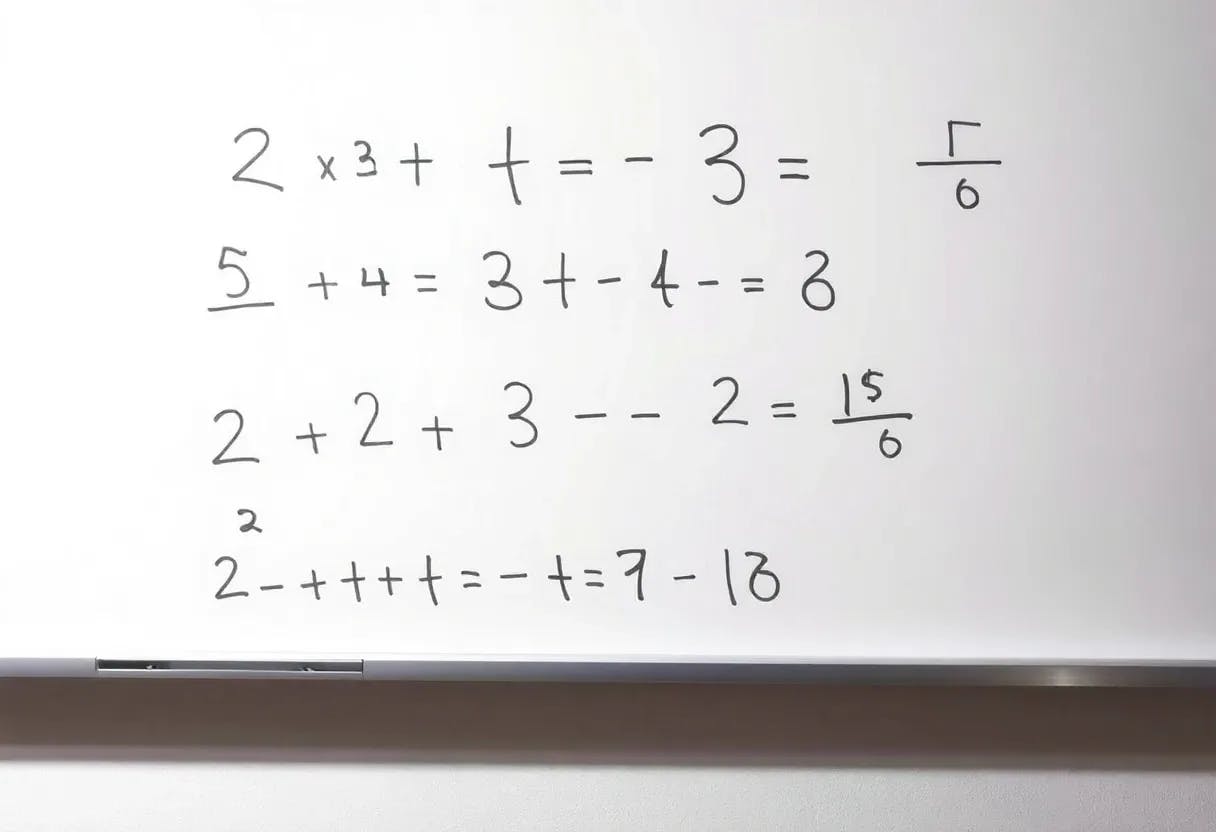 2 × 3 + t = - 3 = Γ/6
5 + 4 = 3 t - 4 - = 8
2 + 2 + 3 - - 2 = 15/6
2
2 - + t + t = - t = 7 - 18